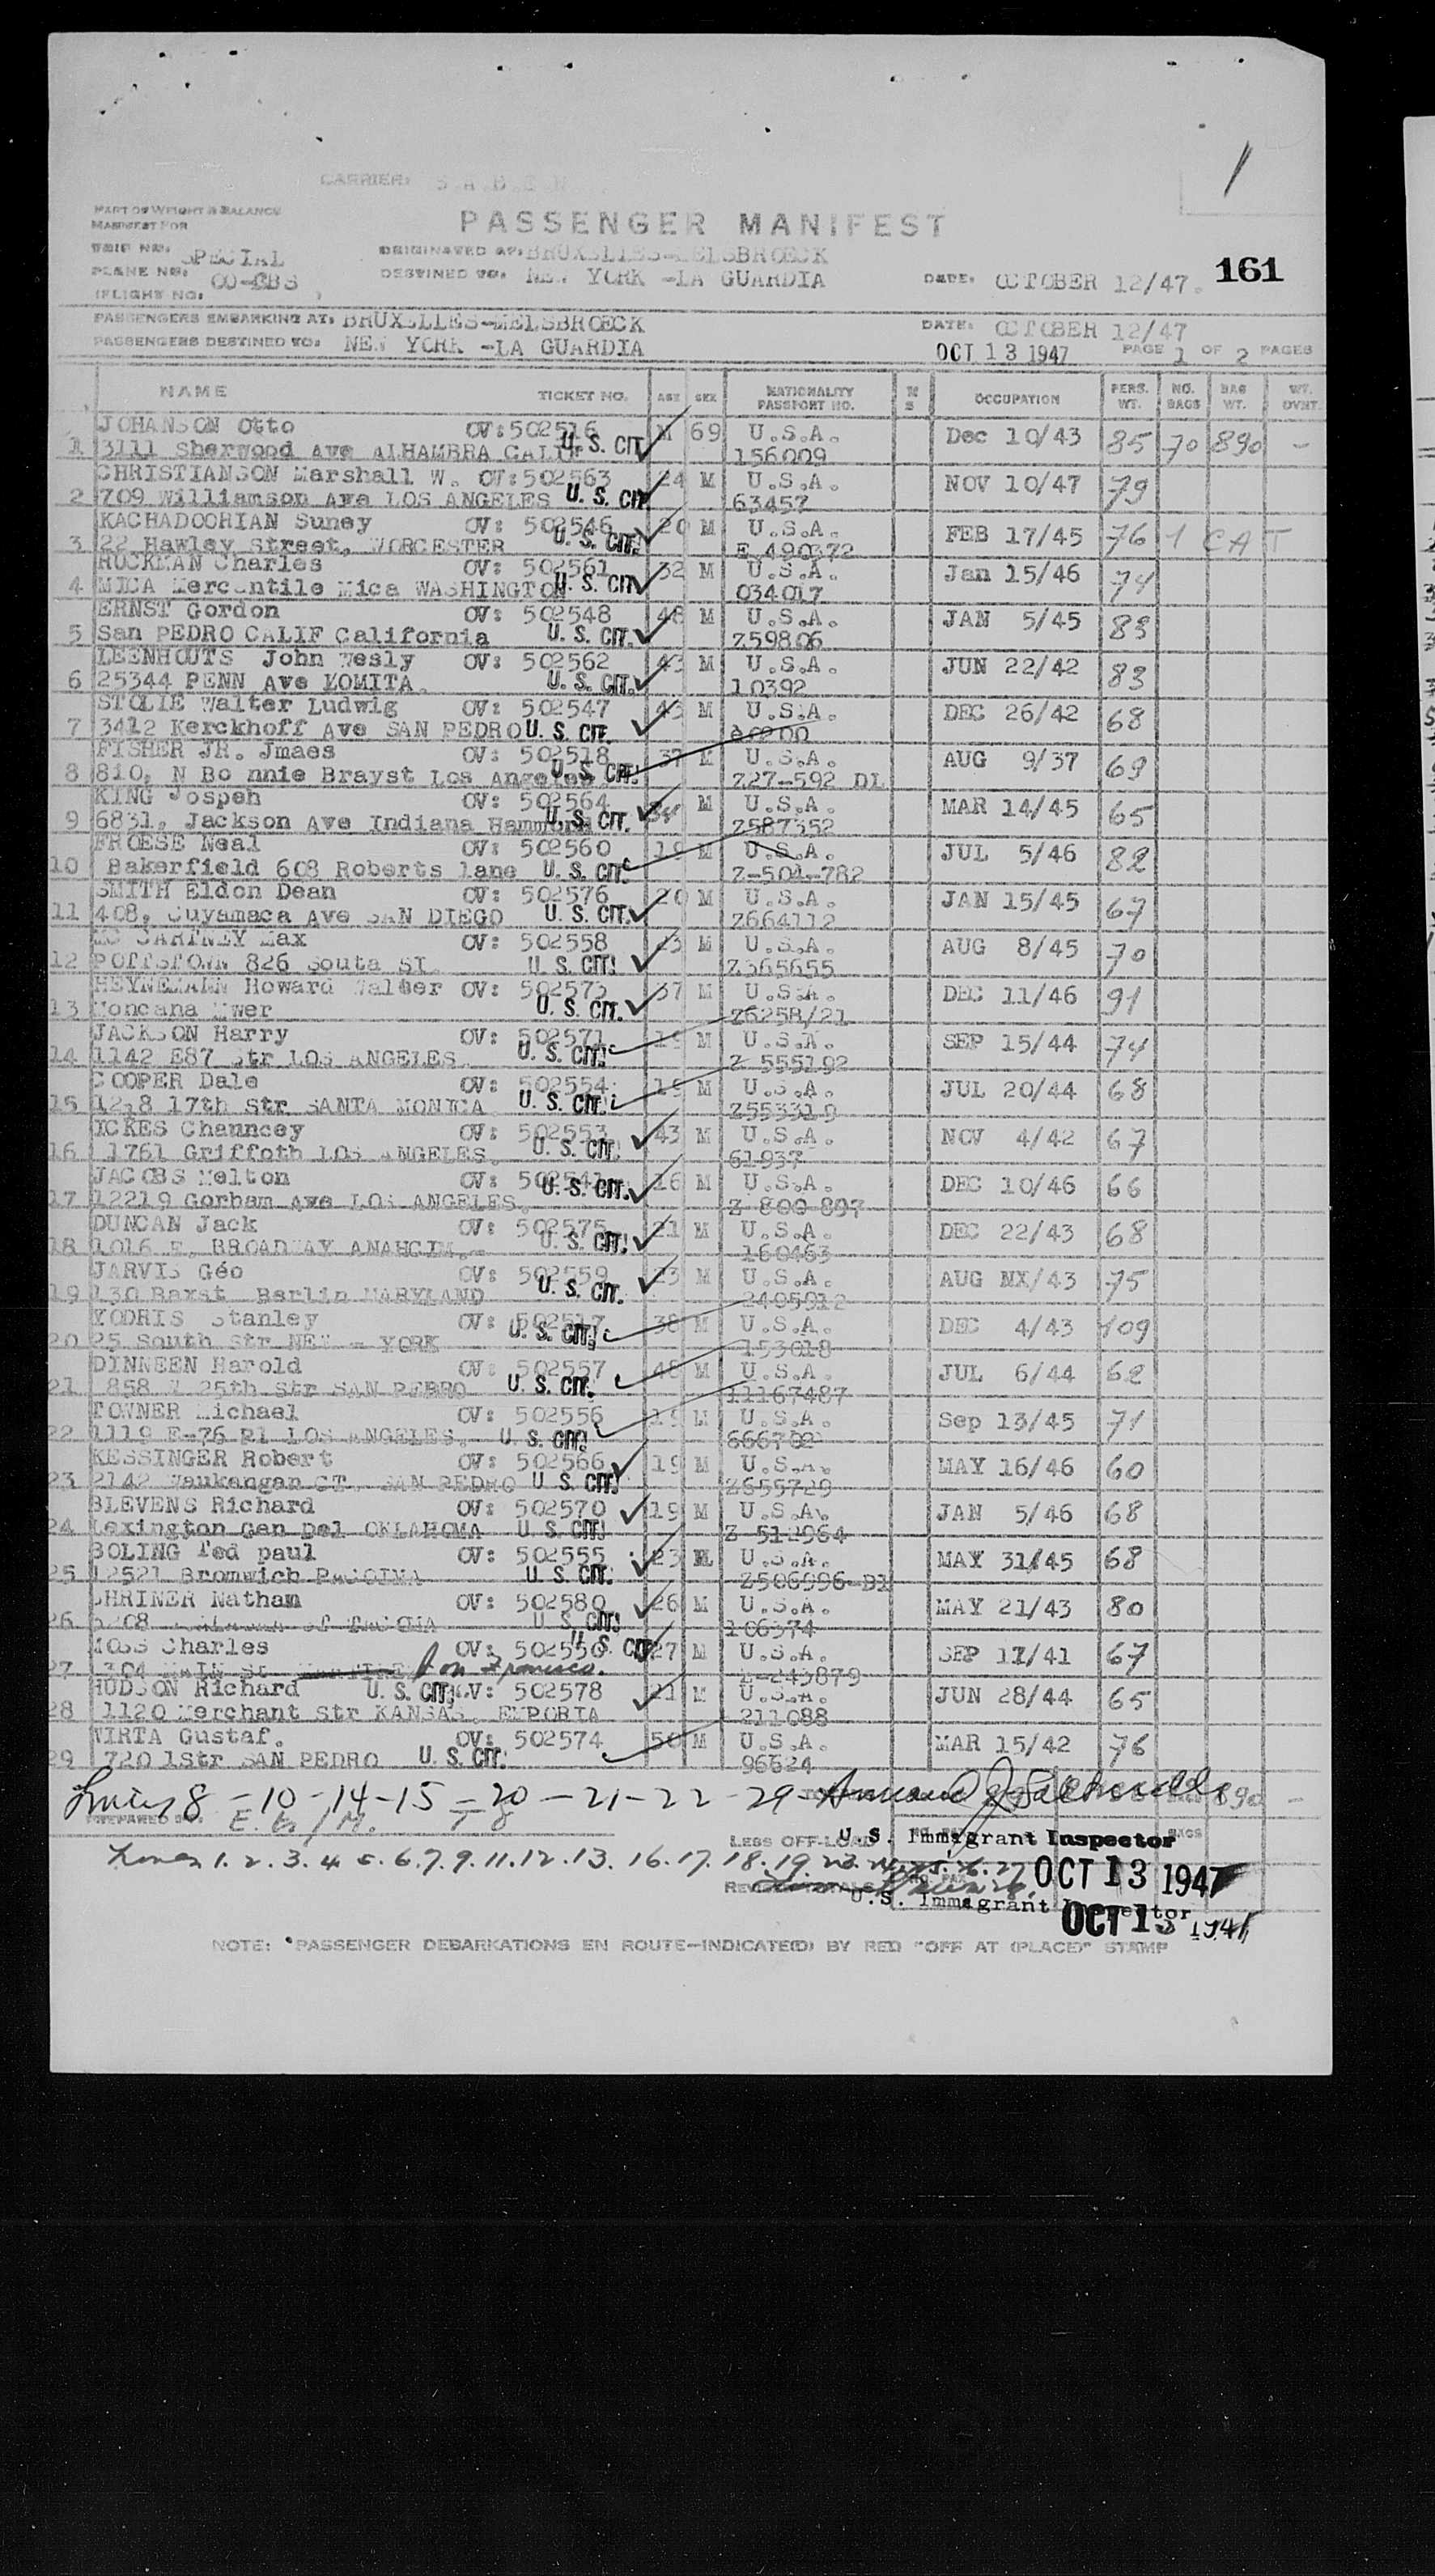 1
CARRIER: S.A.B.E.N.
PART OF WEIGHT & BALANCE
MANIFEST FOR
PASSENGER MANIFEST
TRIP NO: SPECIAL
ORIGINATED AT: BRUXELLES-MELSBROECK
PLANE NO: OO-CBS
DESTINED TO: NEW YORK -LA GUARDIA
DATE: OCTOBER 12/47.
161
(FLIGHT NO: )
PASSENGERS EMBARKING AT: BRUXELLES-MELSBROECK
DATE: OCTOBER 12/47
PASSENGERS DESTINED TO: NEW YORK -LA GUARDIA
OCT 13 1947
PAGE 1 OF 2 PAGES
NAME TICKET NO. AGE SEX NATIONALITY PASSPORT NO. OCCUPATION PERS. WT. NO. BAGS BAG WT. WT. OVHT.
JOHANSON Otto OV:502516 M 69 U.S.A. Dec 10/43 85 70 890 -
1 3111 Sherwood Ave ALHAMBRA CALIF U. S. CIT 156009
CHRISTIANSON Marshall W. OV:502563 24 M U.S.A. NOV 10/47 79
2 709 Williamson Ave LOS ANGELES U. S. CIT. 63457
KACHADOORIAN Suney OV: 502546 20 M U.S.A. FEB 17/45 76 1 CAT
3 22 Hawley Street, WORCESTER U. S. CIT. E.490372
HOCKMAN Charles OV: 502561 32 M U.S.A. Jan 15/46 74
4 MICA Mercantile Mica WASHINGTON U. S. CIT 034017
ERNST Gordon OV: 502548 48 M U.S.A. JAN 5/45 83
5 San PEDRO CALIF California U. S. CIT. Z59806
LEENHOUTS John Wesly OV: 502562 43 M U.S.A. JUN 22/42 83
6 25344 PENN Ave LOMITA. U. S. CIT. 10392
STOLIE Walter Ludwig OV: 502547 43 M U.S.A. DEC 26/42 68
7 3412 Kerckhoff Ave SAN PEDRO U. S. CIT.
FISHER JR. Jmaes OV: 502518 37 M U.S.A. AUG 9/37 69
8 810, N Bo nnie Brayst Los Angeles U. S. CIT. Z27-592 D1
KING Jospeh OV: 502564 34 M U.S.A. MAR 14/45 65
9 6831, Jackson Ave Indiana Hammond U. S. CIT. Z587352
FROESE Neal OV: 502560 19 M U.S.A. JUL 5/46 82
10 Bakerfield 608 Roberts lane U. S. CIT. Z-504-782
SMITH Eldon Dean OV: 502576 20 M U.S.A. JAN 15/45 67
11 408, Cuyamaca Ave SAN DIEGO U. S. CIT. Z664112
MC CARTNEY Max OV: 502558 23 M U.S.A. AUG 8/45 70
12 POTTSTOWN 826 Souta ST. U. S. CIT. Z365655
HEYNEMANN Howard Walter OV: 502573 37 M U.S.A. DEC 11/46 91
13 U. S. CIT. Z625B/21
JACKSON Harry OV: 502571 19 M U.S.A. SEP 15/44 74
14 1142 E87 Str LOS ANGELES. U. S. CIT. Z 555192
COOPER Dale OV: 502554 19 M U.S.A. JUL 20/44 68
15 1238 17th Str SANTA MONICA U. S. CIT. Z553319
ICKES Chauncey OV: 502553 43 M U.S.A. NOV 4/42 67
16 1761 Griffoth LOS ANGELES. U. S. CIT. 61937
JACOBS Melton OV: 502541 16 M U.S.A. DEC 10/46 66
17 12219 Gorham Ave LOS ANGELES. U. S. CIT. Z 800 897
DUNCAN Jack OV: 502575 21 M U.S.A DEC 22/43 68
18 1016 E. BROADWAY ANAHEIM. U. S. CIT. 160463
JARVIS Géo OV: 502559 23 M U.S.A. AUG NX/43 75
19 130 Baxst Berlin MARYLAND U. S. CIT. 2405912
YODRIS Stanley OV: 502517 38 M U.S.A. DEC 4/43 109
20 25 South Str NEW - YORK U. S. CIT. 153018
DINNEEN Harold OV: 502557 48 M U.S.A JUL 6/44 62
21 858 W 25th Str SAN PEDRO U. S. CIT. 11167487
TOWNER Michael OV: 502556 19 M U.S.A. Sep 13/45 71
22 1119 E-76 Pl LOS ANGELES. U. S. CIT. 666702
KESSINGER Robert OV: 502566 19 M U.S.A. MAY 16/46 60
23 2142 Waukangan CT. SAN PEDRO U. S. CIT. Z655729
BLEVENS Richard OV: 502570 19 M U.S.A. JAN 5/46 68
24 Lexington Gen Del OKLAHOMA U. S. CIT. Z 512964
BOLING Ted paul OV: 502555 23 M U.S.A. MAY 31/45 68
25 12521 Bromwich PACOIMA U. S. CIT. Z506996-D1
SHRINER Nathan OV: 502580 26 M U.S.A. MAY 21/43 80
26 TACOMA U. S. CIT. 106374
MOSS Charles OV: 502550 U. S. CIT. 27 M U.S.A. SEP 11/41 67
27 304 MAIN St San Francisco. Z-243879
HUDSON Richard U. S. CIT. OV: 502578 21 M U.S.A. JUN 28/44 65
28 1120 Merchant Str KANSAS. EMPORIA 211088
VIRTA Gustaf. OV: 502574 50 M U.S.A. MAR 15/42 76
29 720 1Str SAN PEDRO U. S. CIT. 96624
Lines 8 -10 -14-15 -20 -21-22 -29 890 -
PREPARED BY:
LESS OFF-LOAD U. S. Immigrant Inspector
Lines 1.2.3.4.5.6.7.9.11.12.13.16.17.18.19.23.24.25.26.27. OCT 13 1947
U.S. Immigrant Inspector
OCT 13 1947
NOTE: "PASSENGER DEBARKATIONS EN ROUTE-INDICATE(D) BY RED "OFF AT (PLACE)" STAMP